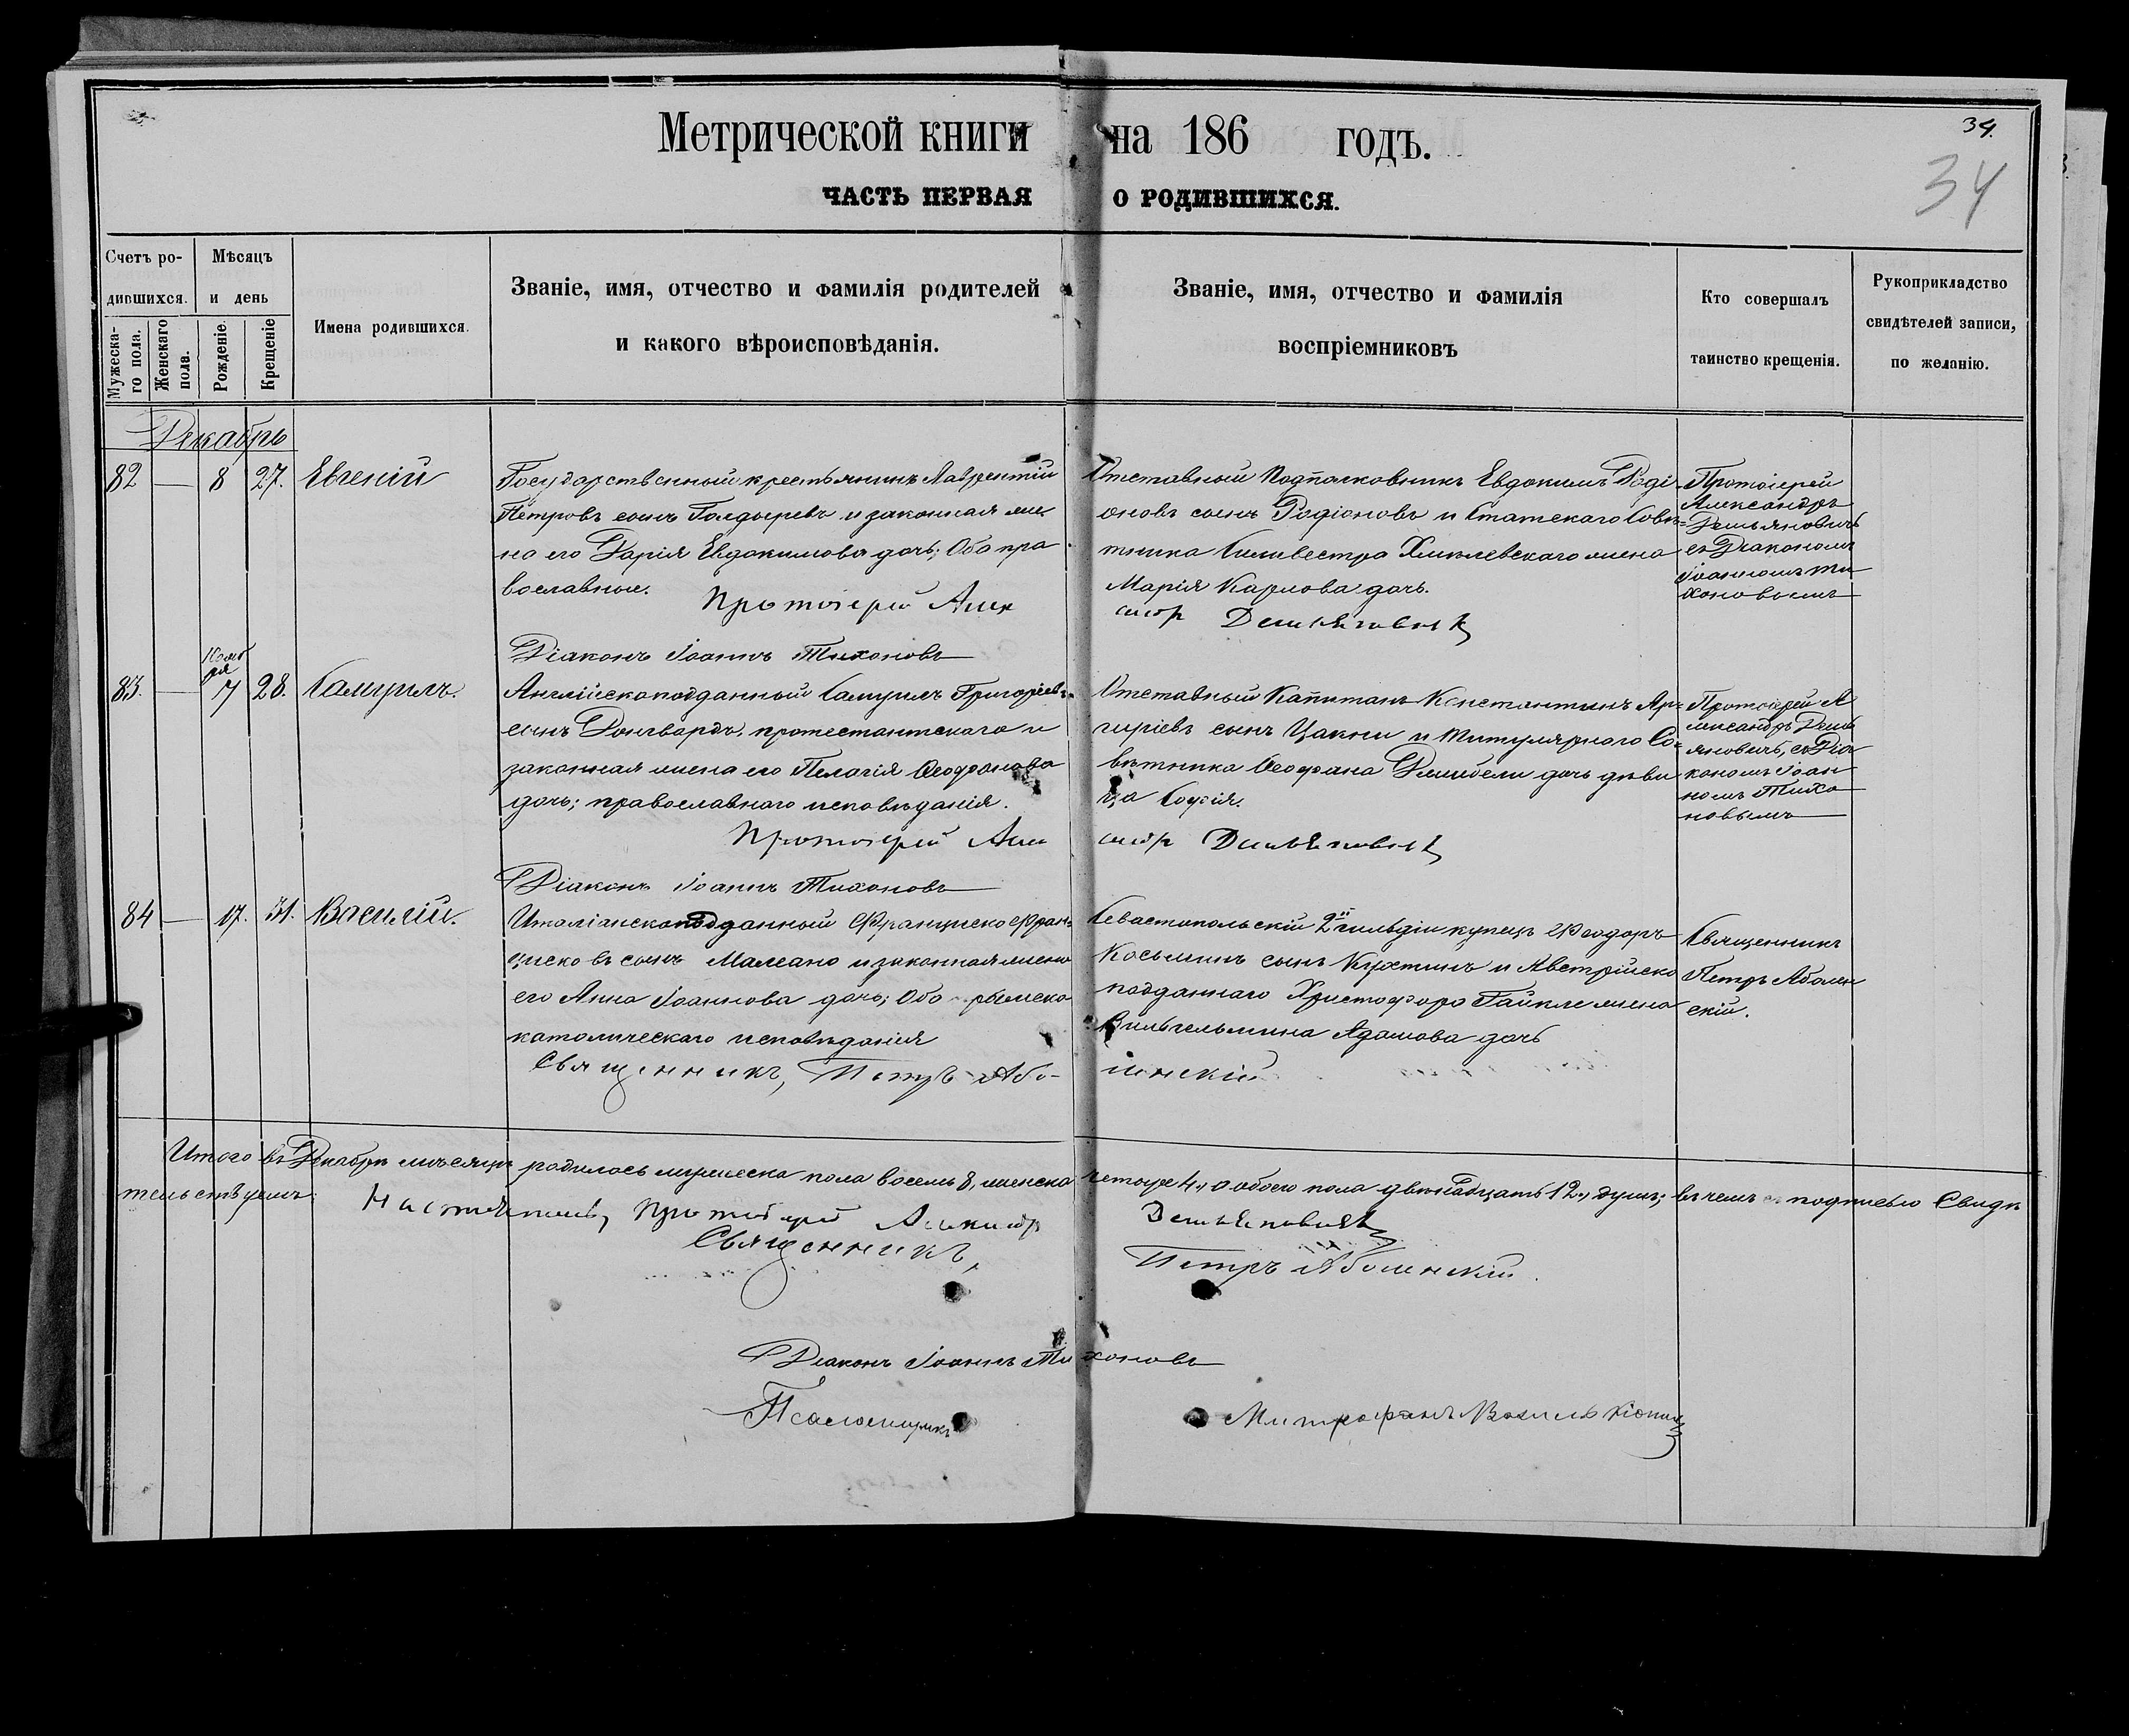 Метрической книги на 186 годъ.
34.
34
ЧАСТЬ ПЕРВАЯ О РОДИВШИХСЯ.
Счетъ родившихся.
Мужескаго пола.
Женскаго пола.
Мѣсяцъ и день
Рожденіе.
Крещеніе
Имена родившихся.
Званіе, имя, отчество и фамилія родителей
и какого вѣроисповѣданія.
Званіе, имя, отчество и фамилія
воспріемниковъ
Кто совершалъ
таинство крещенія.
Рукоприкладство
свидѣтелей записи,
по желанію.
Декабрь
82 — 8 27. Евгеній
Государственный крестьянинъ Лаврентій
Петровъ сынъ и законная же-
на его Дарія Евдокимова дочь; Оба пра
вославные.
Отставный Подполковникъ Евдокимъ Роді
оновъ сынъ Родіоновъ и Статскаго Совѣ=
тника Сильвестра Хмѣлевскаго жена
Марія Карлова дочь.
Протоіерей
Александръ
Демьяновичъ
съ Діакономъ
Іоанномъ Ти
хоновымъ
Протоіерей Алек
сандръ Демьяновичъ
Діаконъ Іоаннъ Тихоновъ
83. — Ноября 7 28. Самуилъ.
Англійскоподданный Самуилъ Григоріевъ
сынъ протестантскаго и
законная жена его Пелагія Ѳеофанова
дочь; православнаго исповѣданія.
Отставный Капитанъ Константинъ Ар=
гиріевъ сынъ Цакни и Титулярнаго Со=
вѣтника Ѳеофана дочь дѣви
ца Софія.
Протоіерей А
лександръ Демь
яновичъ, съ Діа
кономъ Іоан
номъ Тихо
новымъ
Протоіерей Алек
сандръ Демьяновичъ
Діаконъ Іоаннъ Тихоновъ
84 — 17. 31. Василій.
Италіанскоподданный Франциско Фран=
цисковъ сынъ Малеано и законная жена
его Анна Іоаннова дочь; Оба рымско
католическаго исповѣданія
Севастопольскій 2й гильдіи купецъ Ѳеодоръ
Косьминъ сынъ и Австрійско
подданнаго Христофора жена
Вильгельмина Адамова дочь
Священникъ
Петръ Аболен
скій.
Священникъ, Петръ Або-
ленскій
Итого въ Декабрѣ мѣсяцѣ родилось мужеска пола восемь 8, женска четыре 4, а обоего пола двѣнадцать 12, душъ; въ чемъ подписью Свидѣ
тельствуемъ:
Настоятель, Протоіерей Александръ Демьяновичъ
Священникъ, Петръ Аболенскій.
Діаконъ Іоаннъ Тихоновъ
Псаломщикъ Митрофанъ